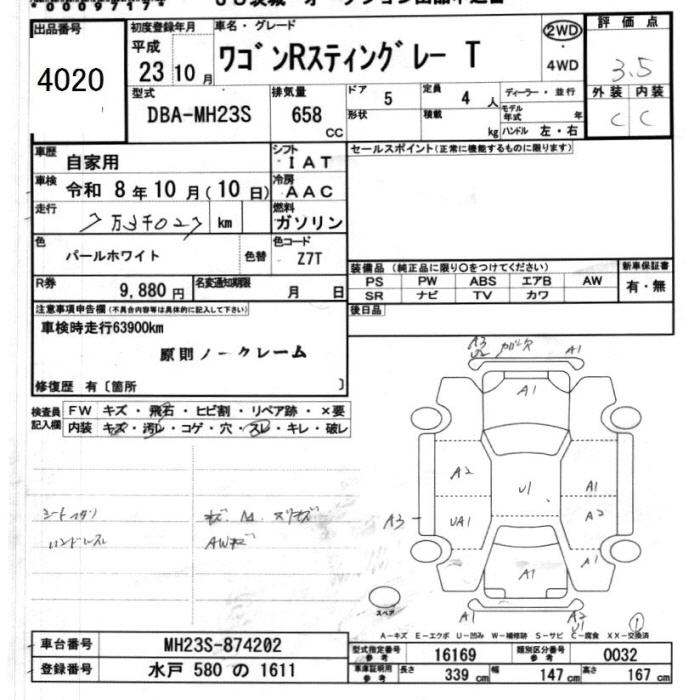 出品番号
4020
初度登録年月
平成
23年10月
車名・グレード
ワゴンRスティングレー T
2WD
・
4WD
評価点
3.5
外装 内装
C C
型式
DBA-MH23S
排気量
658
CC
ドア
5
形状
定員
4人
積載
kg
ディーラー・並行
モデル年式 年
ハンドル 左・右
車歴
自家用
車検
令和 8年10月(10日)
走行
7万3千027 km
色
パールホワイト
色替
シフト
IAT
冷房
AAC
燃料
ガソリン
色コード
Z7T
R券
9,880円
名変通知期限
月 日
セールスポイント(正常に機能するものに限ります)
装備品 (純正品に限り○をつけてください)
PS PW ABS エアB AW
SR ナビ TV カワ
新車保証書
有・無
後日品
注意事項申告欄(不具合内容等は具体的に記入して下さい)
車検時走行63900km
原則ノークレーム
修復歴 有〔箇所 〕
検査員記入欄
FW キズ・飛石・ヒビ割・リペア跡・×要
内装 キズ・汚レ・コゲ・穴・スレ・キレ・破レ
A3
A1
A1
A2
U1
A1
UA1
A2
A3
A1
A1
A2
U1
①
スペア
ハンドルスレ
AWキズ
A-キズ E-エクボ U-凹み W-補修跡 S-サビ C-腐食 XX-交換済
車台番号
MH23S-874202
登録番号
水戸 580 の 1611
型式指定番号
参考
16169
類別区分番号
参考
0032
車庫証明用
参考
長さ 339 cm
幅 147 cm
高さ 167 cm